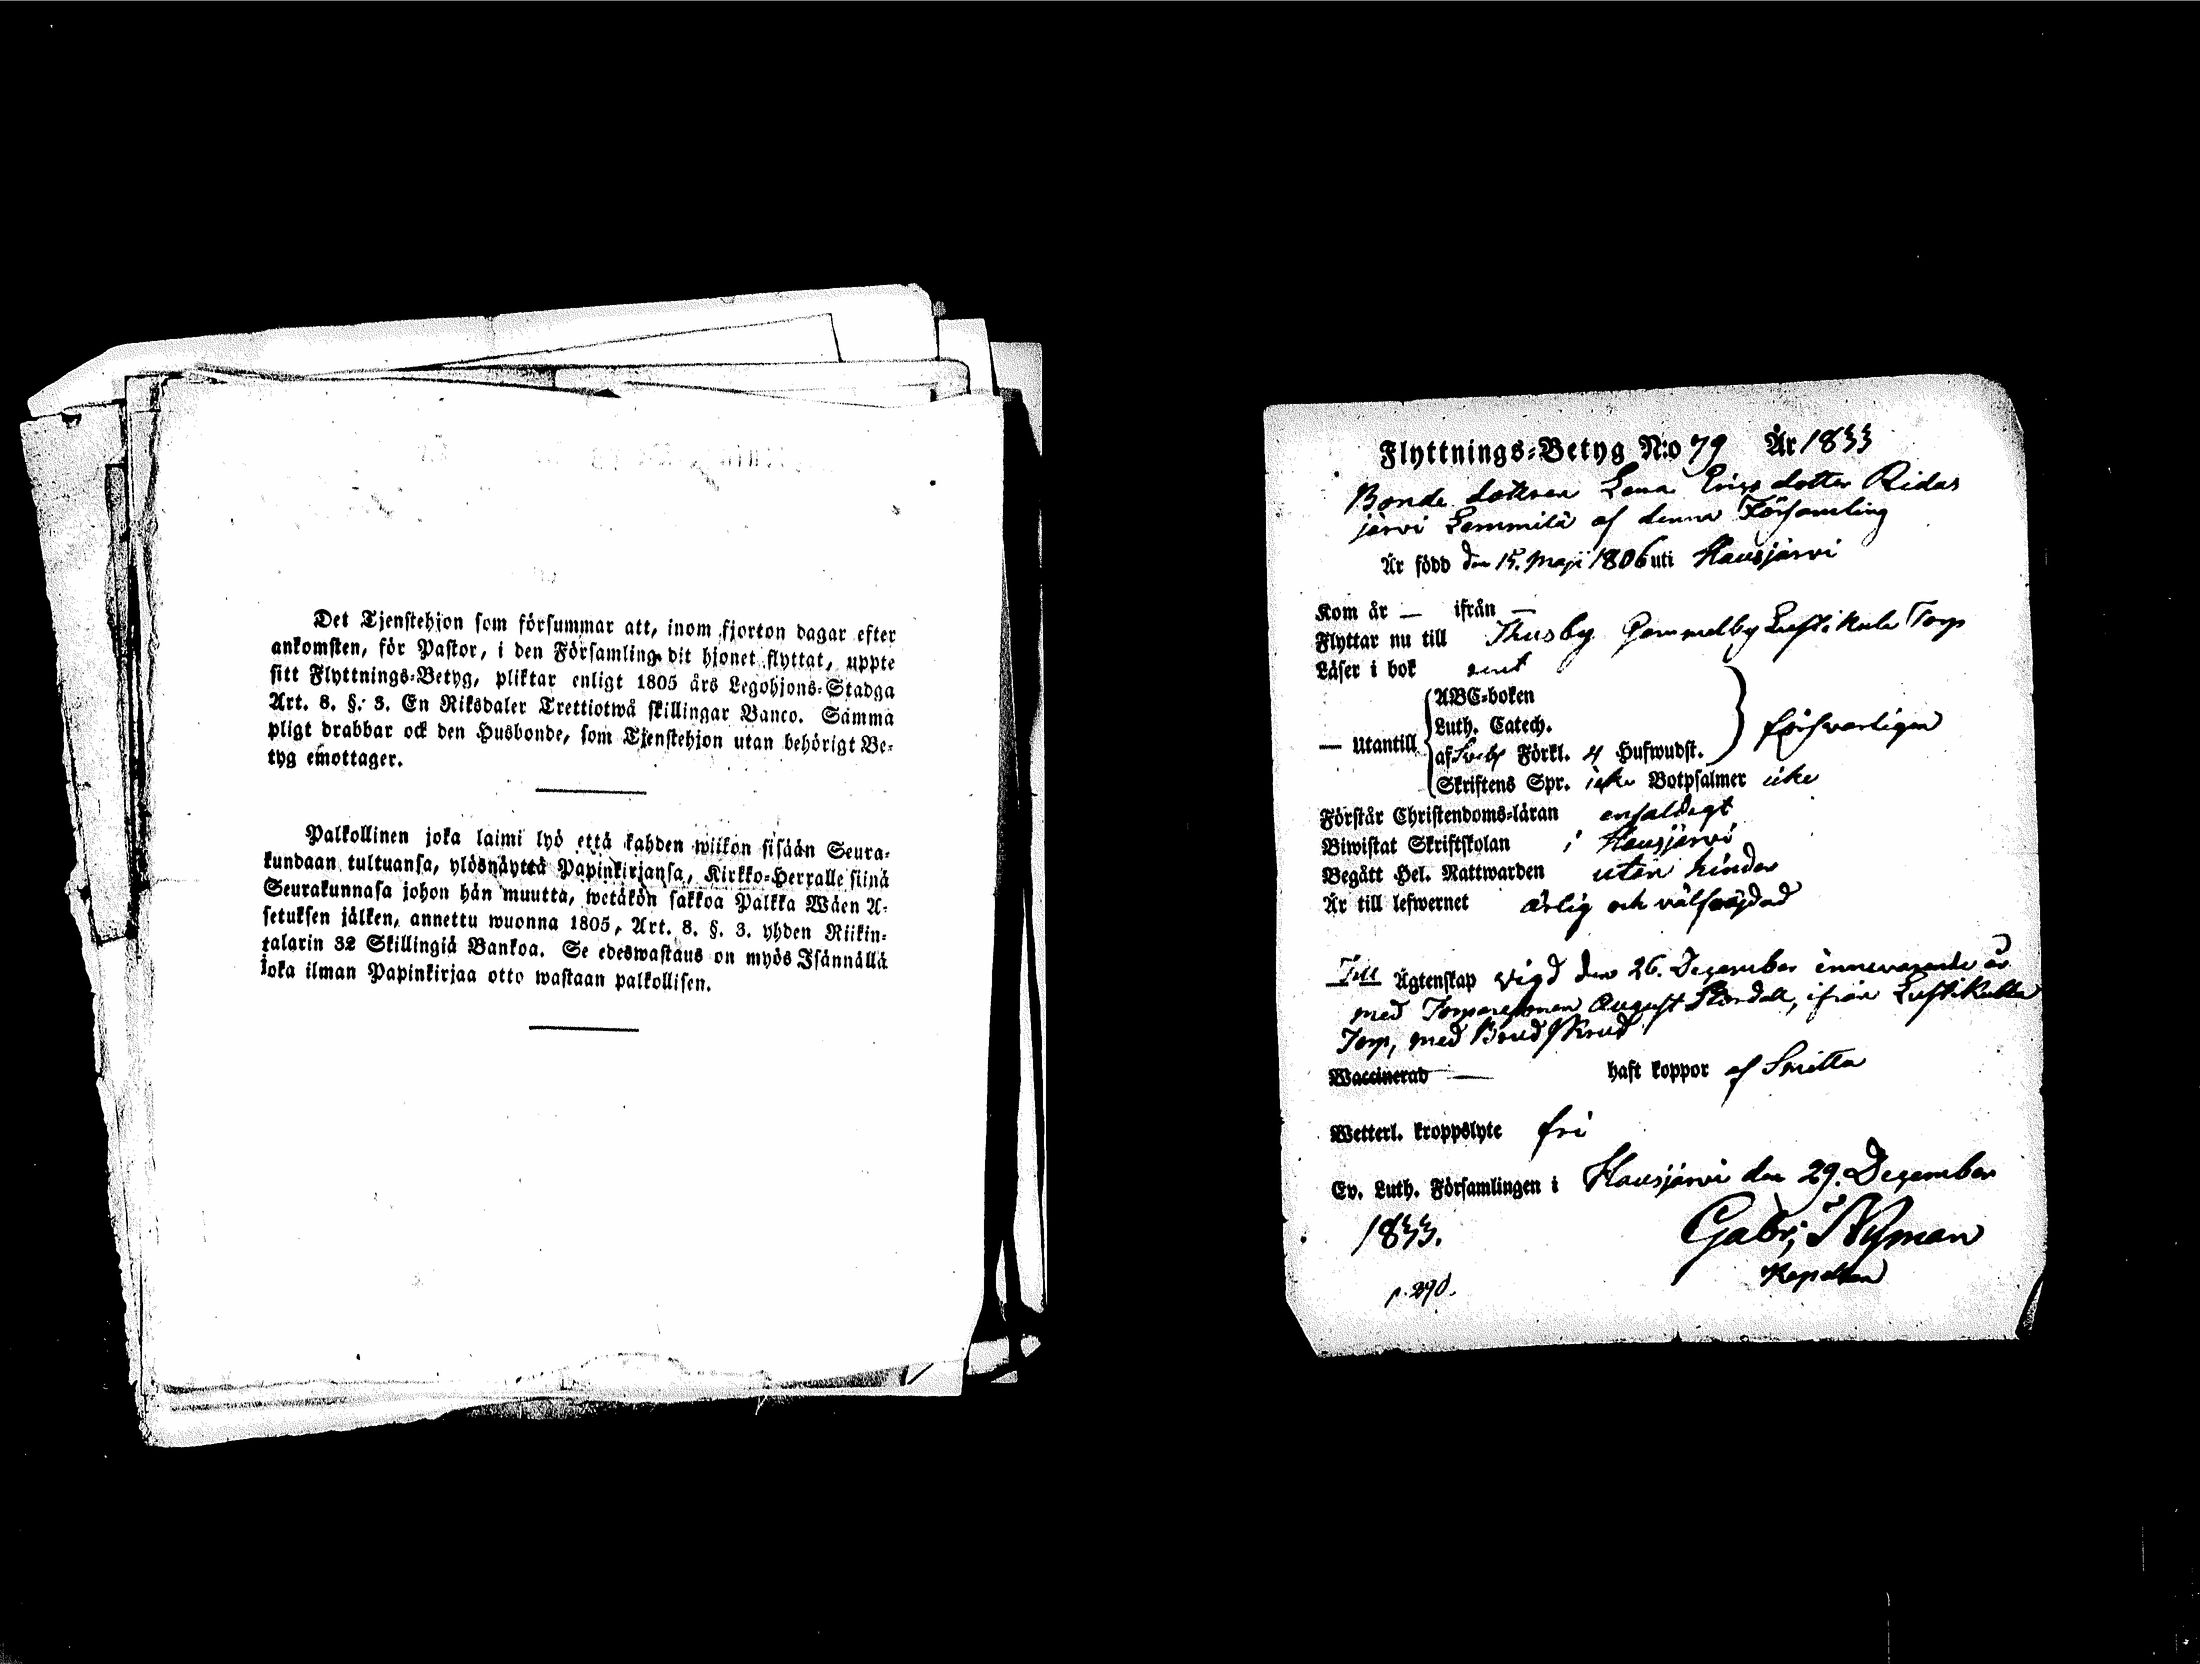 Det Tjenstehjon som försummar att, inom fjorton dagar efter
ankomsten, för Pastor, i den Församling dit hjonet flyttat, uppte
sitt Flyttnings-Betyg, pliktar enligt 1805 års Legohjons-Stadga
Art. 8. §. 3. En Riksdaler Trettiotwå skillingar Banco. Samma
pligt drabbar ock den Husbonde, som Tjenstehjon utan behörigt Be-
tyg emottager.
Palkollinen joka laimi lyö että kahden wiikon sisään Seura-
kundaan tultuansa, ylösnäyttä Papinkirjansa, Kirkko-Herralle siinä
Seurakunnasa johon hän muutta, wetäkön sakkoa Palkka Wäen A-
setuksen jälken, annettu wuonna 1805, Art. 8. §. 3. yhden Riikin-
talarin 32 Skillingiä Bankoa. Se edeswastaus on myös Isännällä
joka ilman Papinkirjaa otto wastaan palkollisen.
Flyttnings-Betyg N:o 79 År 1833
Bonde dottren Lena Ericsdotter Ridas
järvi Lemmilä af denna Församling
Är född den 15. Maji 1806 uti Hausjärvi
Kom år — ifrån —
Flyttar nu till Thusby Gammelby Luftikula Torp
Läser i bok rent
— Utantill
ABC-boken
Luth. Catech.
af Sveb. Förkl. 4 Hufwudst.
försvarligen
Skriftens Spr. icke Botpsalmer icke
Förstår Christendoms-läran enfaldigt
Biwistat Skriftskolan i Hausjärvi
Begått Hel. Nattwarden utan hinder
Är till lefwernet ärlig och välfrejdad
Till Ägtenskap vigd den 26. December innevarande år
med August ifrån Luftikulla
Torp, med BrudSkrud
Waccinerad — haft koppor af Smitta
Wetterl. kroppslyte fri
Ev. Luth. Församlingen i Hausjärvi den 29. December
1833. Gabr. Nyman
Kapellan
p. 290.